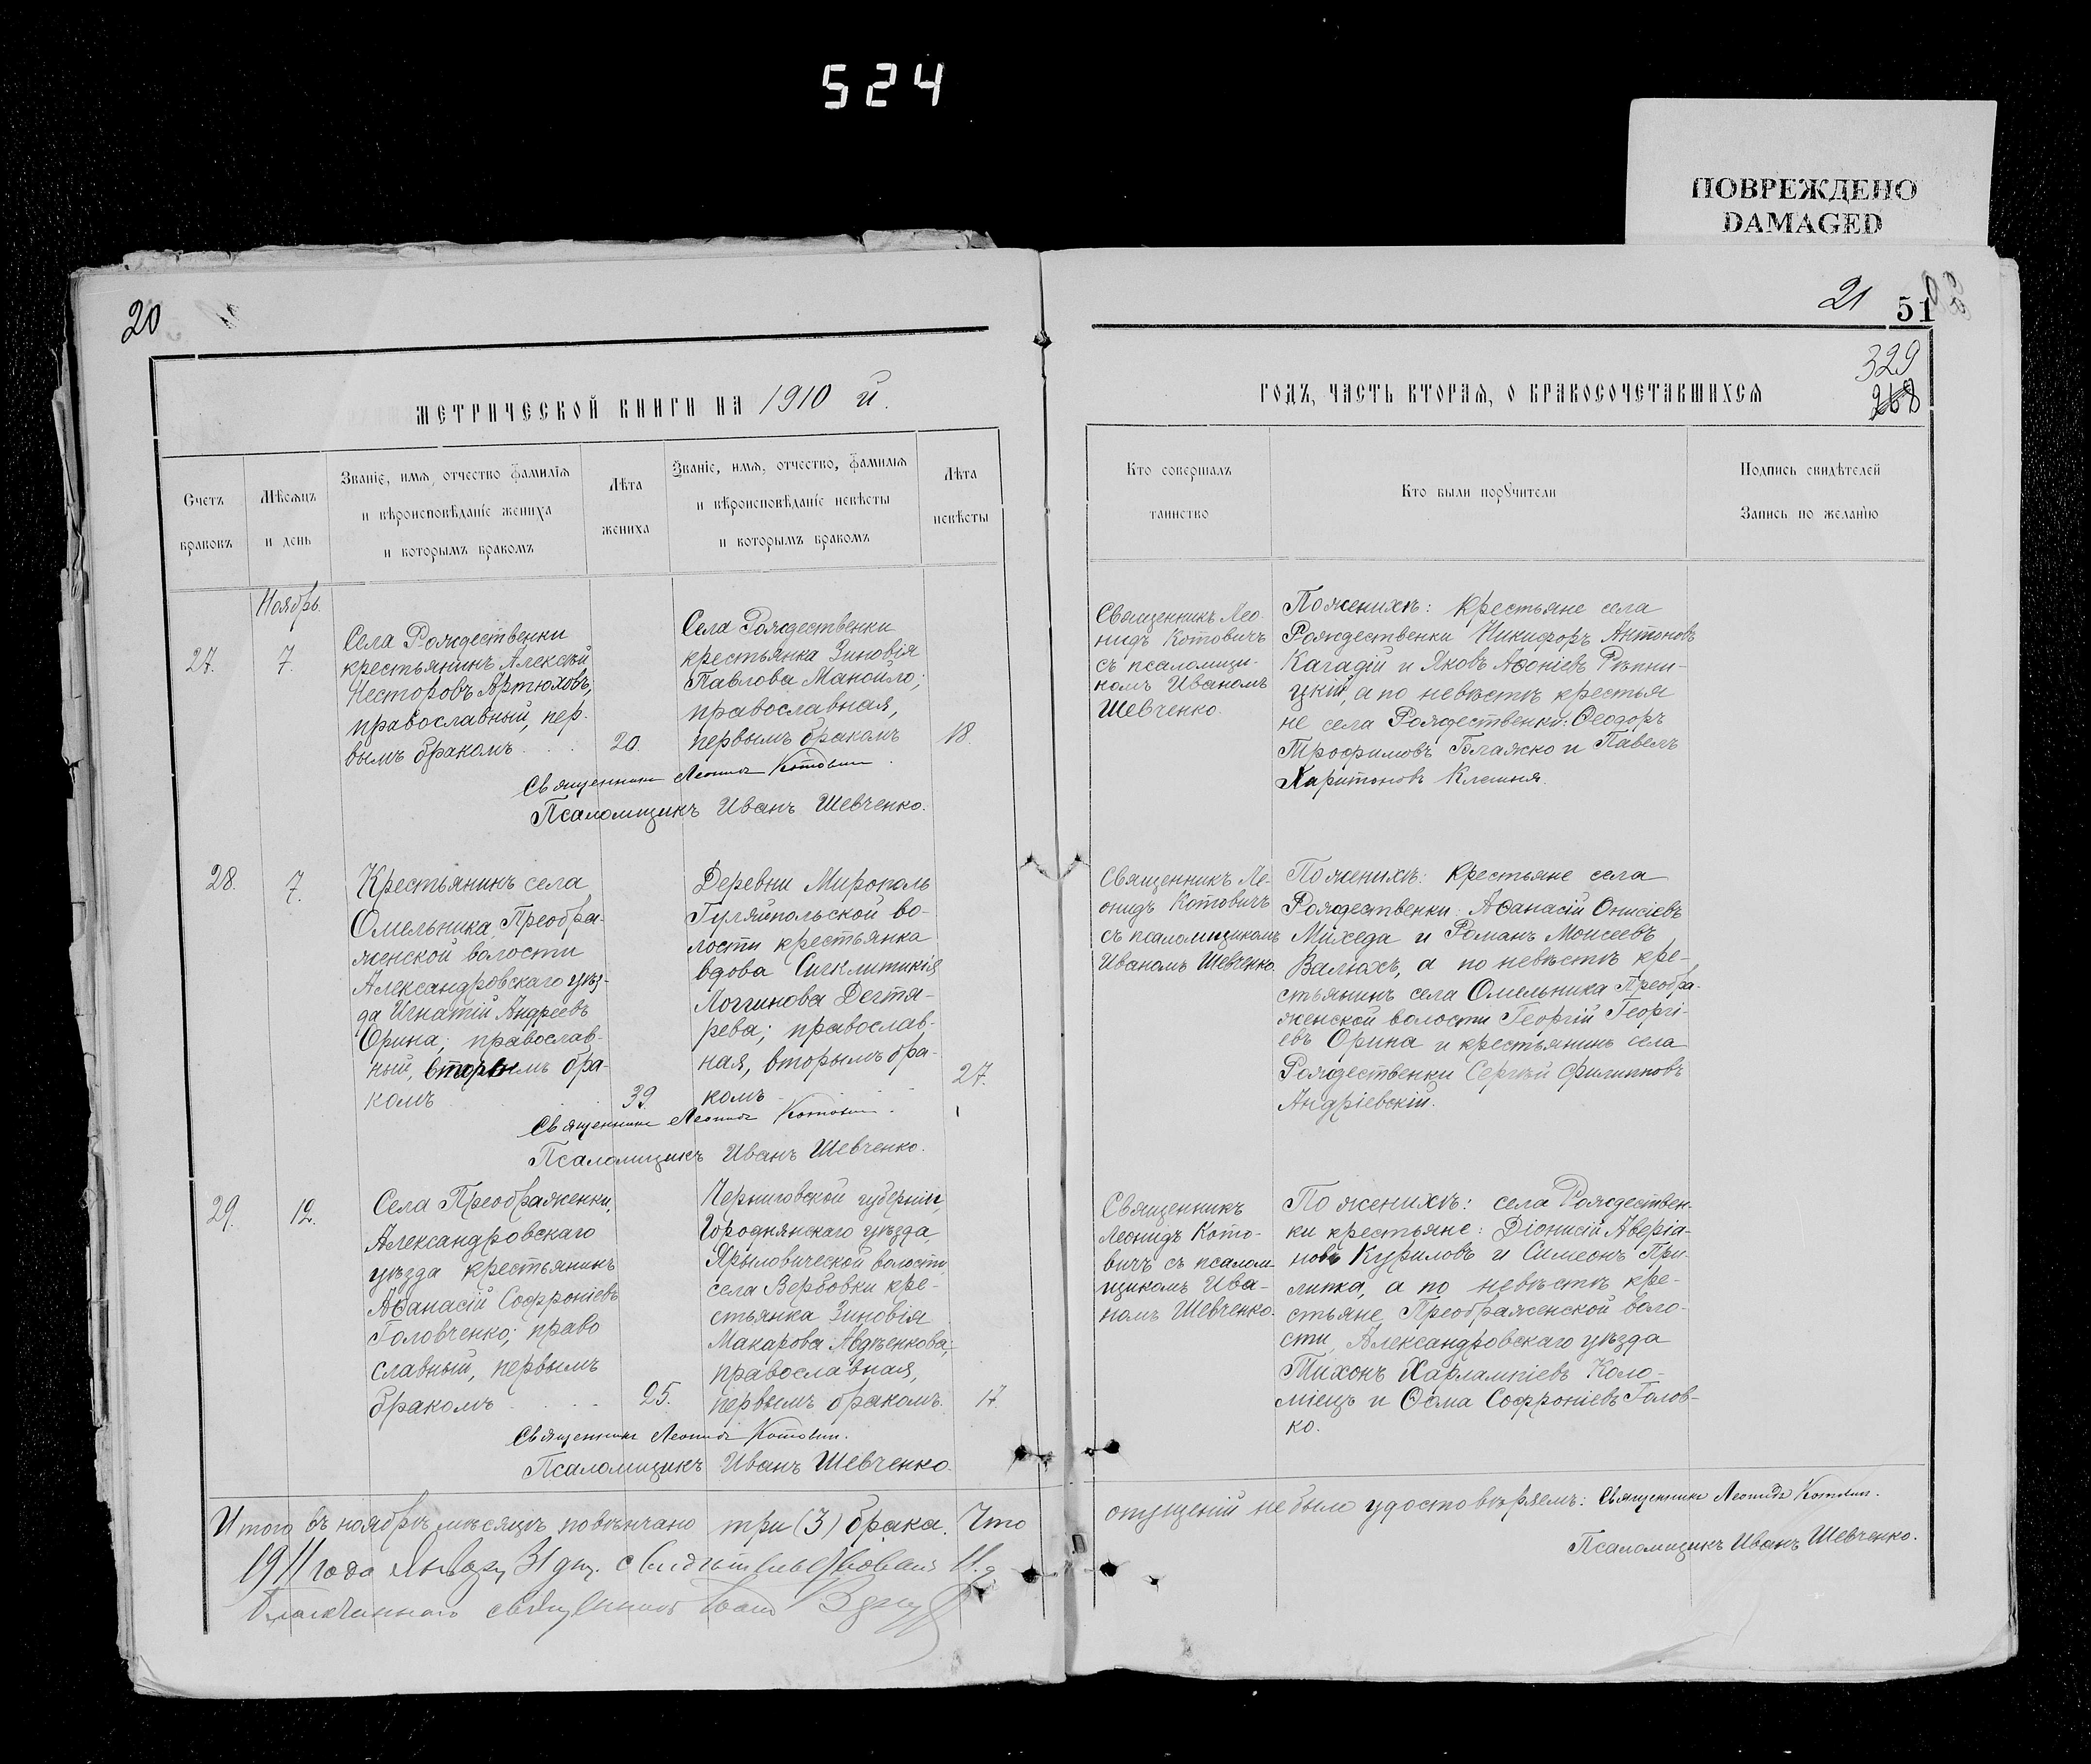 524
ПОВРЕЖДЕНО
DAMAGED
20
МЕТРИЧЕСКОЙ КНИГИ НА 1910 й.
Счетъ
браковъ
Мѣсяцъ
и день
Званіе, имя, отчество фамилія
и вѣроисповѣданіе жениха
и которымъ бракомъ
Лѣта
жениха
Званіе, имя, отчество, фамилія
и вѣроисповѣданіе невѣсты
и которымъ бракомъ
Лѣта
невѣсты
Ноябрь.
27.
7.
Села Рождественки
крестьянинъ Алексѣй
Несторовъ Артюховъ,
православный, пер-
вымъ бракомъ
20.
Села Рождественки
крестьянка Зиновія
Павлова Манойло;
православная,
первымъ бракомъ
18.
Священникъ Леонидъ Котович
Псаломщикъ Иванъ Шевченко.
28.
7.
Крестьянинъ села
Омельника Преобра-
женской волости
Александровскаго уѣз-
да Игнатій Андреевъ
Орина; православ-
ный, вторымъ бра-
комъ
39.
Деревни Мирополь
Гуляйпольской во-
лости крестьянка
вдова Сигклитикія
Логгинова Дегтя-
рева; православ-
ная, вторымъ бра-
комъ
27.
Священникъ Леонидъ Котович
Псаломщикъ Иванъ Шевченко.
29.
12.
Села Преображенки,
Александровскаго
уѣзда крестьянинъ
Аѳанасій Софроніевъ
Головченко; право
славный, первымъ
бракомъ
25.
Черниговской губерніи,
Городнянскаго уѣзда
Ярыловической волости
села Вербовки кре-
стьянка Зиновія
Макарова Авдѣенкова;
православная,
первымъ бракомъ.
17.
Священникъ Леонидъ Котович.
Псаломщикъ Иванъ Шевченко.
Итого въ ноябрѣ мѣсяцѣ повѣнчано три (3) брака. Что
1911 года Январу 31 дня. свидѣтельствовалъ И. д
благочиннаго священникъ
21
51
329
268
ГОДЪ, ЧАСТЬ ВТОРАЯ, О БРАКОСОЧЕТАВШИХСЯ
Кто совершалъ
таинство
Кто были поручители
Подпись свидѣтелей
Запись по желанію
Священникъ Лео-
нидъ Котовичъ
съ псаломщи-
комъ Иваномъ
Шевченко.
По женихѣ: крестьяне села
Рождественки Никифоръ Антоновъ
Кагадій и Яковъ Аѳоніевъ Рѣпни-
цкій, а по невѣстѣ крестья
не села Рождественки: Ѳеодоръ
Трофимовъ Блажко и Павелъ
Харитоновъ Клешня.
Священникъ Ле-
онидъ Котовичъ
съ псаломщикомъ
Иваномъ Шевченко.
По женихѣ: крестьяне села
Рождественки: Аѳанасій Онисіевъ
Михеда и Романъ Моисеевъ
Валюхъ, а по невѣстѣ кре-
стьянинъ села Омельника Преобра-
женской волости Георгій Георгі-
евъ Орина и крестьянинъ села
Рождественки Сергѣй Филипповъ
Андріевскій.
Священникъ
Леонидъ Кото-
вичъ съ псалом-
щикомъ Ива-
номъ Шевченко.
По женихѣ: села Рождествен-
ки крестьяне: Діонисій Аверіа-
новъ Куриловъ и Симеонъ При-
липка, а по невѣстѣ кре-
стьяне Преображенской воло-
сти, Александровскаго уѣзда
Тихонъ Харлампіевъ Коло-
міецъ и Ѳома Софроніевъ Голов-
ко.
опущеній не было удостовѣряемъ: Священникъ Леонидъ Котович.
Псаломщикъ Иванъ Шевченко.